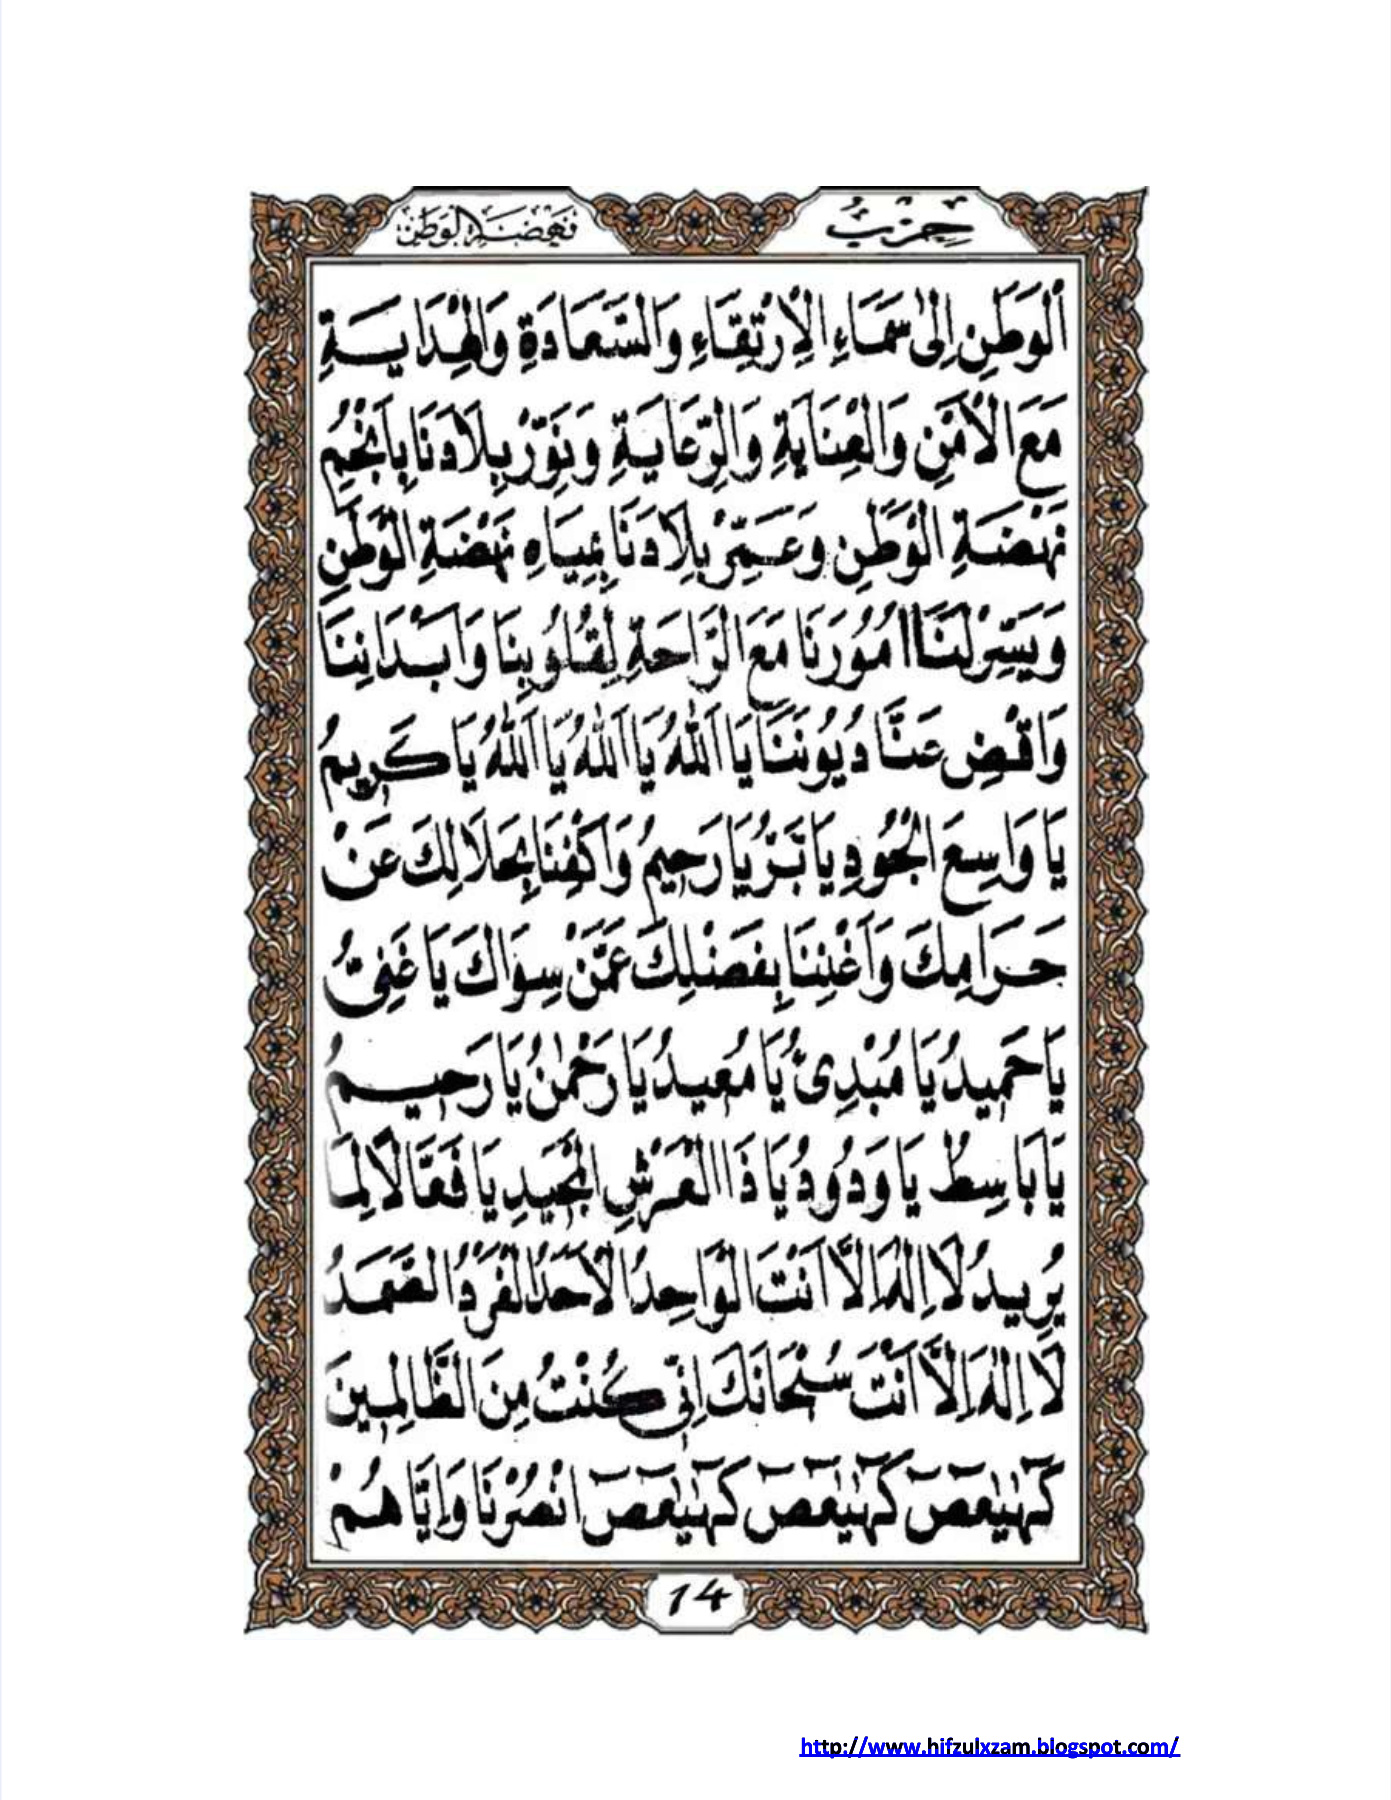 حِزْبُ
نَهْضَةِ الْوَطَنِ
اَلْوَطَنِ اِلٰى سَمَاءِ الْاِرْتِقَاءِ وَالسَّعَادَةِ وَالْهِدَايَةِ
مَعَ الْاَمْنِ وَالْعِنَايَةِ وَالرِّعَايَةِ وَنَوِّرْ بِلَادَنَا بِاَنْجُمِ
نَهْضَةِ الْوَطَنِ وَعَمِّرْ بِلَادَنَا بِمِيَاهِ نَهْضَةِ الْوَطَنِ
وَيَسِّرْ لَنَا اُمُوْرَنَا مَعَ الرَّاحَةِ لِقُلُوْبِنَا وَاَبْدَانِنَا
وَاقْضِ عَنَّا دُيُوْنَنَا يَا اَللّٰهُ يَا اَللّٰهُ يَا اَللّٰهُ يَا كَرِيمُ
يَا وَاسِعَ الْجُوْدِ يَا بَرُّ يَا رَحِيمُ وَاكْفِنَا بِحَلَالِكَ عَنْ
حَرَامِكَ وَاَغْنِنَا بِفَضْلِكَ عَمَّنْ سِوَاكَ يَا غَنِيُّ
يَا حَمِيدُ يَا مُبْدِئُ يَا مُعِيدُ يَا رَحْمٰنُ يَا رَحِيمُ
يَا بَاسِطُ يَا وَدُوْدُ يَا ذَا الْعَرْشِ الْمَجِيدِ يَا فَعَّالًا لِمَا
يُرِيدُ لَا اِلٰهَ اِلَّا اَنْتَ الْوَاحِدُ الْاَحَدُ الْفَرْدُ الصَّمَدُ
لَا اِلٰهَ اِلَّا اَنْتَ سُبْحَانَكَ اِنِّى كُنْتُ مِنَ الظَّالِمِينَ
كٓهٰيٰعٓصٓ كٓهٰيٰعٓصٓ كٓهٰيٰعٓصٓ انْصُرْنَا وَاِيَّاهُمْ
14
http://www.hifzulxzam.blogspot.com/